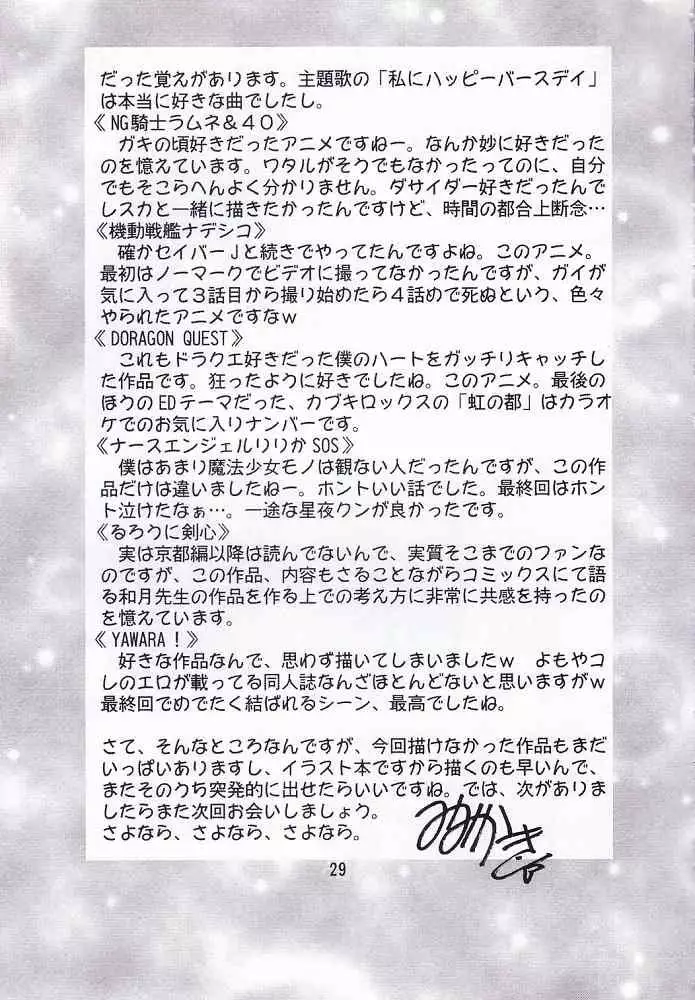 だった覚えがあります。主題歌の「私にハッピーバースデイ」
は本当に好きな曲でしたし。
《NG騎士ラムネ&40》
ガキの頃好きだったアニメですねー。なんか妙に好きだった
のを憶えています。ワタルがそうでもなかったってのに、自分
でもそこらへんよく分かりません。ダサイダー好きだったんで
レスカと一緒に描きたかったんですけど、時間の都合上断念…
《機動戦艦ナデシコ》
確かセイバーJと続きでやってたんですよね。このアニメ。
最初はノーマークでビデオに撮ってなかったんですが、ガイが
気に入って3話目から撮り始めたら4話めで死ぬという、色々
やられたアニメですなw
《DORAGON QUEST》
これもドラクエ好きだった僕のハートをガッチリキャッチし
た作品です。狂ったように好きでしたね。このアニメ。最後の
ほうのEDテーマだった、カブキロックスの「虹の都」はカラオ
ケでのお気に入りナンバーです。
《ナースエンジェルりりかSOS》
僕はあまり魔法少女モノは観ない人だったんですが、この作
品だけは違いましたねー。ホントいい話でした。最終回はホン
ト泣けたなぁ…。一途な星夜クンが良かったです。
《るろうに剣心》
実は京都編以降は読んでないんで、実質そこまでのファンな
のですが、この作品、内容もさることながらコミックスにて語
る和月先生の作品を作る上での考え方に非常に共感を持ったの
を憶えています。
《YAWARA！》
好きな作品なんで、思わず描いてしまいましたw よもやコ
レのエロが載ってる同人誌なんざほとんどないと思いますがw
最終回でめでたく結ばれるシーン、最高でしたね。
さて、そんなところなんですが、今回描けなかった作品もまだ
いっぱいありますし、イラスト本ですから描くのも早いんで、
またそのうち突発的に出せたらいいですね。では、次がありま
したらまた次回お会いしましょう。
さよなら、さよなら、さよなら。
29